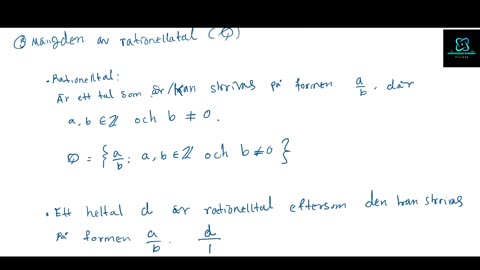 ③ Mängden av rationellatal (Q)
• Rationelltal:
Är ett tal som är/kan skrivas på formen a/b, där
a, b ∈ ℤ och b ≠ 0.
Q = { a/b : a, b ∈ ℤ och b ≠ 0 }
• Ett heltal d är rationelltal eftersom den kan skrivas
på formen a/b. d/1